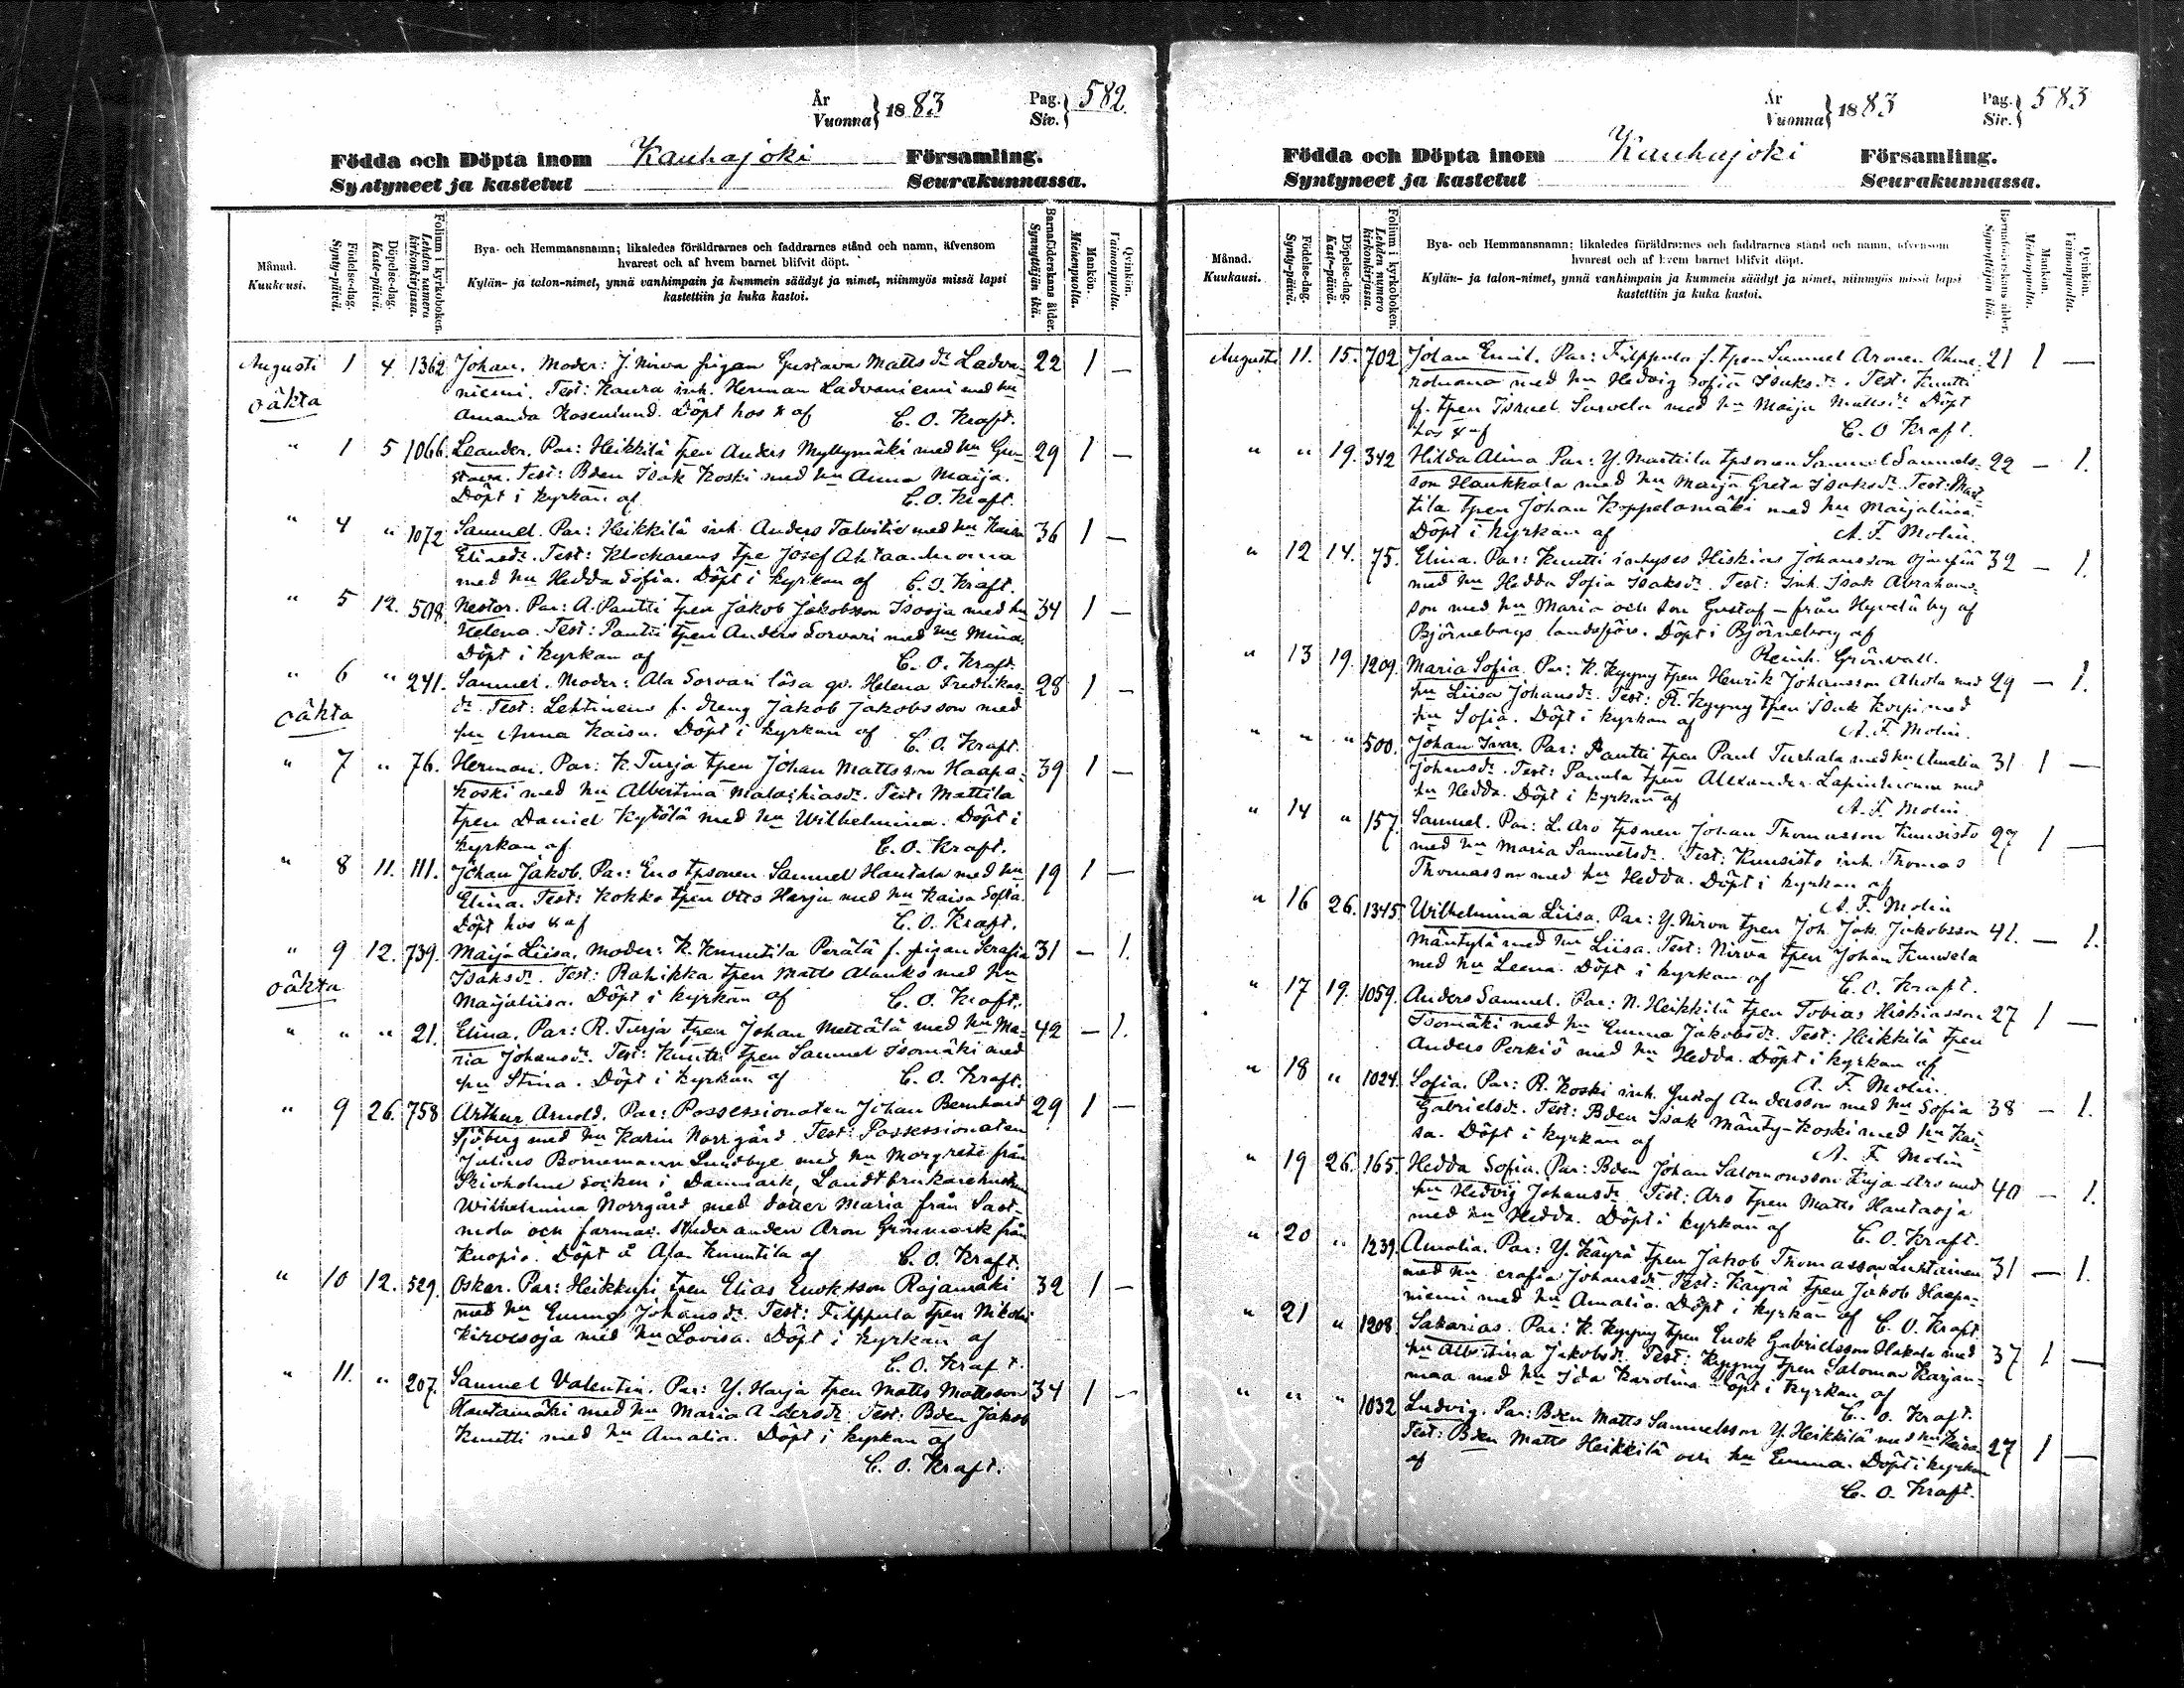 År
Vuonna} 1883 Pag.
Siv.} 582
Födda och Döpta inom Kauhajoki Församling.
Syntyneet ja kastetut Seurakunnassa.
Månad.
Kuukausi.
Födelse-dag.
Synty-päivä.
Döpelse-dag.
Kaste-päivä.
Folium i kyrkoboken.
Lehden numero
kirkonkirjassa.
Bya- och Hemmansnamn; likaledes föräldrarnes och faddrarnes stånd och namn, äfvensom
hvarest och af hvem barnet blifvit döpt.
Kylän- ja talon-nimet, ynnä vanhimpain ja kummein säädyt ja nimet, niinmyös missä lapsi
kastettiin ja kuka kastoi.
Barnaföderskans ålder.
Synnyttäjän ikä.
Mankön.
Miehenpuolta.
Qvinkön.
Vaimonpuolta.
Augusti 1 4 1362 Johan. Moder: J. Nirva pigan Gustava Matts dr Ladva- 22 1 —
oäkta niemi. Test: Kaura inh. Herman Ladvaniemi med hu
Amanda Rosenlund. Döpt hos af C. O. Kraft.
" 1 5 1066. Leander. Par: Heikkilä tpen Anders Myllymäki med hu Gu- 29 1 —
stava. Test: Bden Isak Koski med hu Anna Maija.
Döpt i kyrkan af C. O. Kraft.
" 4 " 1072 Samuel. Par: Heikkilä inh. Anders Talvitie med hu Kaisa 36 1 —
Eliasdr. Test: Klockarens tpe Josef Ahtaanluoma
med hu Hedda Sofia. Döpt i kyrkan af C. O. Kraft.
" 5 12. 508. Nestor. Par: A. Pantti tpen Jakob Jakobsson Isooja med hu 34 1 —
Helena. Test: Pantti tpen Anders Sorvari med hu Mina.
Döpt i kyrkan af C. O. Kraft.
" 6 " 241. Samuel. Moder: Ala Sorvari lösa qv. Helena Fredrikas- 28 1 —
oäkta dr Test: Lehtinens f. dreng Jakob Jakobsson med
hu Anna Kaisa. Döpt i kyrkan af C. O. Kraft.
" 7 " 76. Herman. Par: K. Turja tpen Johan Mattsson Haapa- 39 1 —
koski med hu Albertina Malakiasdr. Test: Mattila
tpen Daniel Kytölä med hu Wilhelmina. Döpt i
kyrkan af C. O. Kraft.
" 8 11. 111. Johan Jakob. Par: Eno tpsonen Samuel Hautala med hu 19 1 —
Elina. Test: Kokko tpen Otto Harju med hu Kaisa Sofia.
Döpt hos af C. O. Kraft.
" 9 12. 739. Maija Liisa. Moder: K. Knuutila Perälä f. pigan Serafia 31 — 1.
oäkta Isaksdr. Test: Rahikka tpen Matts Alanko med hu
Maijaliisa. Döpt i kyrkan af C. O. Kraft.
" " " 21. Elina. Par: R. Turja tpen Johan Mettälä med hu Ma- 42 — 1.
ria Johansdr. Test: Knutti tpen Samuel Isomäki med
hu Stina. Döpt i kyrkan af C. O. Kraft.
" 9 26. 758 Arthur Arnold. Par: Possessionaten Johan Bernhard 29 1 —
Sjöberg med hu Karin Norrgård. Test: Possessionaten
Julius Bornemann Lundbye med hu Margrete från
Skivholme socken i Danmark, Landtbrukarehustrun
Wilhelmina Norrgård med dotter Maria från Sast-
mola och farmac. studeranden Aron Grönmark från
Kuopio. Döpt å Ala Knuutila af C. O. Kraft.
" 10 12. 529. Oskar. Par: Heikkuri tpen Elias Enoksson Rajamäki 32 1 —
med hu Emma Johansdr. Test: Filppula tpen Nikolai
Kirvesoja med hu Lovisa. Döpt i kyrkan af
C. O. Kraft.
" 11. " 207. Samuel Valentin. Par: Y. Harja tpen Matts Mattsson 34 1 —
Hautamäki med hu Maria Andersdr. Test: Bden Jakob
Knutti med hu Amalia. Döpt i kyrkan af
C. O. Kraft.
År
Vuonna} 1883 Pag.
Siv.} 583
Födda och Döpta inom Kauhajoki Församling.
Syntyneet ja kastetut Seurakunnassa.
Månad.
Kuukausi.
Födelse-dag.
Synty-päivä.
Döpelse-dag.
Kaste-päivä.
Folium i kyrkoboken.
Lehden numero
kirkonkirjassa.
Bya- och Hemmansnamn; likaledes föräldrarnes och faddrarnes stånd och namn, äfvensom
hvarest och af hvem barnet blifvit döpt.
Kylän- ja talon-nimet, ynnä vanhimpain ja kummein säädyt ja nimet, niinmyös missä lapsi
kastettiin ja kuka kastoi.
Barnaföderskans ålder.
Synnyttäjän ikä.
Mankön.
Miehenpuolta.
Qvinkön.
Vaimonpuolta.
Augusti 11. 15. 702 Johan Emil. Par: Filppula f. tpen Samuel 21 1 —
med hu Hedvig Sofia Isaksdr. Test: Knutti
f. tpen Israel Sarvela med hu Maija Mattsdr Döpt
hos af C. O Kraft.
" " 19. 342 Hilda Alina Par: Y. Marttila tpsonen Samuel Samuels- 22 — 1.
son Haukkala med hu Maija Greta Isaksdr. Test: Mart-
tila tpen Johan Koppelomäki med hu Maijaliisa.
Döpt i kyrkan af A. F. Molin.
" 12 14. 75. Elina. Par: Knutti inhyses Hiskias Johansson Ojanpää 32 — 1.
med hu Hedda Sofia Isaksdr. Test: Inh. Isak Abrahams-
son med hu Maria och son Gustaf — från Hyvelä by af
Björneborgs landsförs. Döpt i Björneborg af
Reinh. Grönvall.
" 13 19. 1209. Maria Sofia. Par: K. Kyyny tpen Henrik Johansson Ahola med 29 — 1.
hu Liisa Johansdr. Test: R. Kyyny tpen Isak Korpi med
hu Sofia. Döpt i kyrkan af A. F. Molin.
" " " 500. Johan Ivar. Par: Pantti tpen Paul Turhala med hu Amalia 31 1 —
Johansdr. Test: Panula tpen Alexander Lapinluoma med
hu Hedda. Döpt i kyrkan af A. F. Molin.
" 14 " 157. Samuel. Par: L. Aro tpsonen Johan Thomasson Kuusisto 27 1 —
med hu Maria Samuelsdr. Test: Kuusisto inh. Thomas
Thomasson med hu Hedda. Döpt i kyrkan af
A. F. Molin
" 16 26. 1345. Wilhelmina Liisa. Par: Y. Nirva tpen Joh. Jak. Jakobsson 41. — 1.
Mäntylä med hu Liisa. Test: Nirva tpen Johan Kunvela
med hu Leena. Döpt i kyrkan af C. O. Kraft.
" 17 19. 1059. Anders Samuel. Par: N. Heikkilä tpen Tobias Hiskiasson 27 1 —
Isomäki med hu Emma Jakobsdr. Test: Heikkilä tpen
Anders Perkiö med hu Hedda. Döpt i kyrkan af
A. F. Molin.
" 18 " 1024. Sofia. Par: R. Koski inh. Gustaf Andersson med hu Sofia 38 — 1.
Gabrielsdr. Test: Bden Isak Mänty-Koski med hu Kai-
sa. Döpt i kyrkan af A. F. Molin
" 19 26. 165. Hedda Sofia. Par: Bden Johan Salomonsson Luja-Aro med 40 — 1.
hu Hedvig Johansdr. Test: Aro tpen Matts Hautaoja
med hu Hedda. Döpt i kyrkan af C. O. Kraft.
" 20 " 1239. Amalia. Par: Y. Käyrä tpen Jakob Thomasson Luhtainen 31 — 1.
med hu Serafia Johansdr. Test: Käyrä tpen Jakob Haapa-
niemi med hu Amalia. Döpt i kyrkan af C. O. Kraft
" 21 " 1208. Sakarias. Par: K. Kyyny tpen Enok Gabrielsson Hakala med 37 1 —
hu Albertina Jakobsdr. Test: Kyyny tpen Salomon Karjan-
maa med hu Ida Karolina. Döpt i kyrkan af
C. O. Kraft.
" " " 1032 Ludvig. Par: Bden Matts Samuelsson Y. Heikkilä med hu Kaisa. 27 1 —
Test: Bden Matts Heikkilä och hu Emma. Döpt i kyrkan
af
C. O. Kraft.